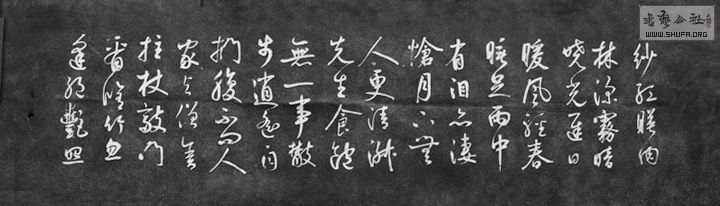 書藝公社
WWW.SHUFA.ORG
紗紅映肉
林深霧暗
曉光遲日
暖風輕春
睡足雨中
有泪亦淒
愴月下無
人更清淑
先生食飽
無一事散
步逍遙自
捫腹不問人
家與僧舍
拄杖敲門
看脩竹忽
逢絕艷照